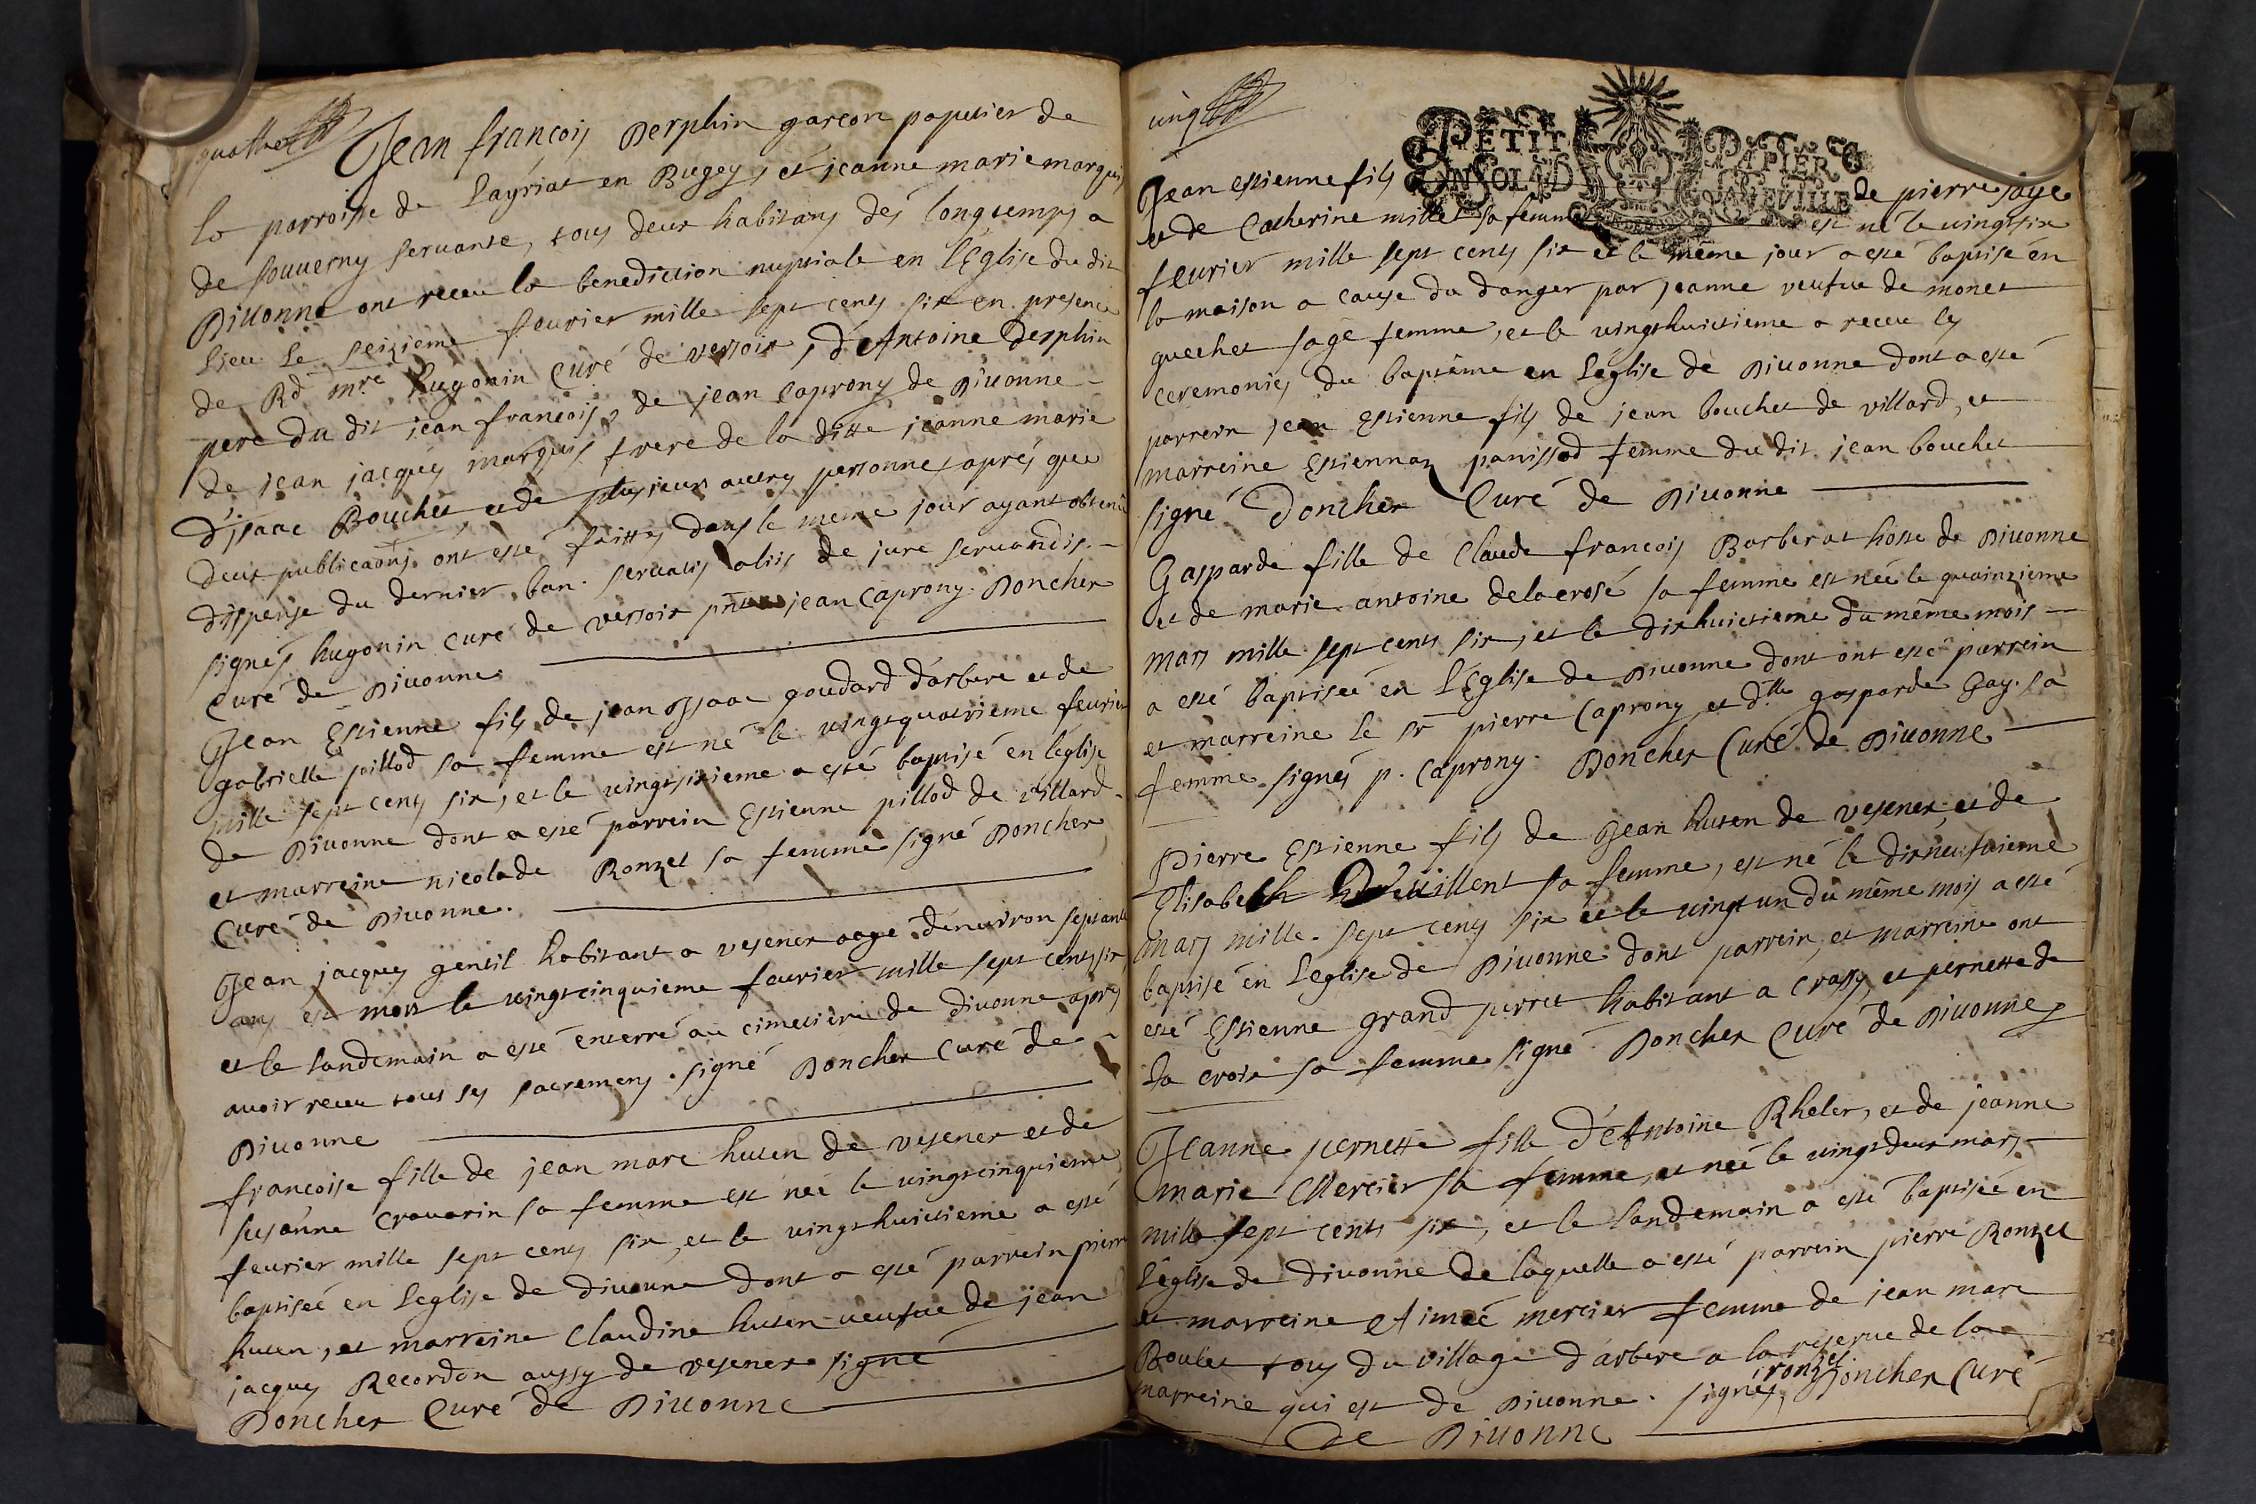 quattre
Jean françois Derphin garçon papetier de
la parroisse de Layriat en Bugey, et jeanne marie marquis
de souuerny seruante, tous deux habitans dés longtemps a
Diuonne ont receu la benediction nuptiale en l'Eglise du dit
lieu le seizieme feurier mille sept cents six en presence
de Rd mre hugonin Curé de versoix, d'Antoine Derphin
pere du dit jean françois, de jean Caprony de Diuonne
de jean jacques marquis frere de la ditte jeanne marie
d'isaac Bouchet et de plusieurs autres personnes aprés que
deux publicaons ont esté faittes dans le meme jour ayant obtenu
dispense du dernier ban. seruatis aliis de jure seruandis.
signés hugonin curé de versoix jean Caprony. Doncher
Curé de Diuonne
Jean Estienne fils de jean Isaac goudard d'arbere et de
gabrielle pillod sa femme est né le vingtquatrieme feurier
mille sept cents six, et le vingtsixieme a esté baptisé en l'église
de Diuonne dont a esté parrein Estienne pillod de villard
et marreine nicolade Ronzet sa femme signé Doncher
Curé de Diuonne.
Jean jacques gentil habitant a vesenex aagé d'enuiron septante
ans est mort le vingtcinquieme feurier mille sept cents six
et le landemain a esté enterré au cimetière de diuonne apres
auoir receu tous ses sacremens. signé Doncher Curé de
Diuonne
françoise fille de jean marc huten de vesenex et de
susanne Crauarin sa femme est neé le vingtcinquieme
feurier mille sept cents six, et le vingthuictieme a esté
baptiseé en l'eglise de diuonne dont a esté parrein pierre
huten, et marreine Claudine huten veufue de jean
jacques Recordon aussy de vesenex signé
Doncher Curé de Diuonne
cinq
PETIT PAPIER
UN SOL 4 D LA FEUILLE
Jean estienne fils de pierre saye
et de Catherine millet sa femme est né le vingtsix
feurier mille sept cents six et le même jour a esté baptisé en
la maison a cause du danger par jeanne veufue de monet
quechet sage femme, et le vingthuictieme a receu les
ceremonies du baptême en l'église de Diuonne dont a esté
parrein jean Estienne fils de jean bouchet de villard, et
marreine Estiennaz panissod femme du dit jean bouchet
signé Doncher Curé de Diuonne
Gasparde fille de Claude françois Barberat hoste de Diuonne
et de marie antoine delacrosé sa femme est née le quainzieme
mars mille sept cents six, et le dixhuictieme du même mois
a esté baptiseé en l'Eglise de Diuonne dont ont esté parrein
et marreine le sr pierre Caprony, et Dlle gasparde Gay sa
femme. signés p. Caprony. Doncher Curé de Diuonne
Pierre Estienne fils de Jean huten de vesenex, et de
Elisabeth sa femme, est né le dixneufuieme
mars mille sept cents six et le vingt un du même mois a esté
baptisé en l'eglise de Diuonne dont parrein, et marreine ont
esté Estienne grand perret habitant a Crassy, et pernette de
la croix sa femme signé Doncher Curé de Diuonne
Jeanne pernette fille d'Antoine Rheler, et de jeanne
marie Mercier sa femme, est neé le vingtdeux mars
mille sept cents six, et le landemain a esté baptiseé en
l'église de diuonne de laquelle a esté parrein pierre Ronzet
et marreine Aimeé mercier femme de jean marc
Boulet tous du village d'arbere a la reserue de la
marreine qui est de Diuonne. signés, ronzet Doncher Curé
de Diuonne